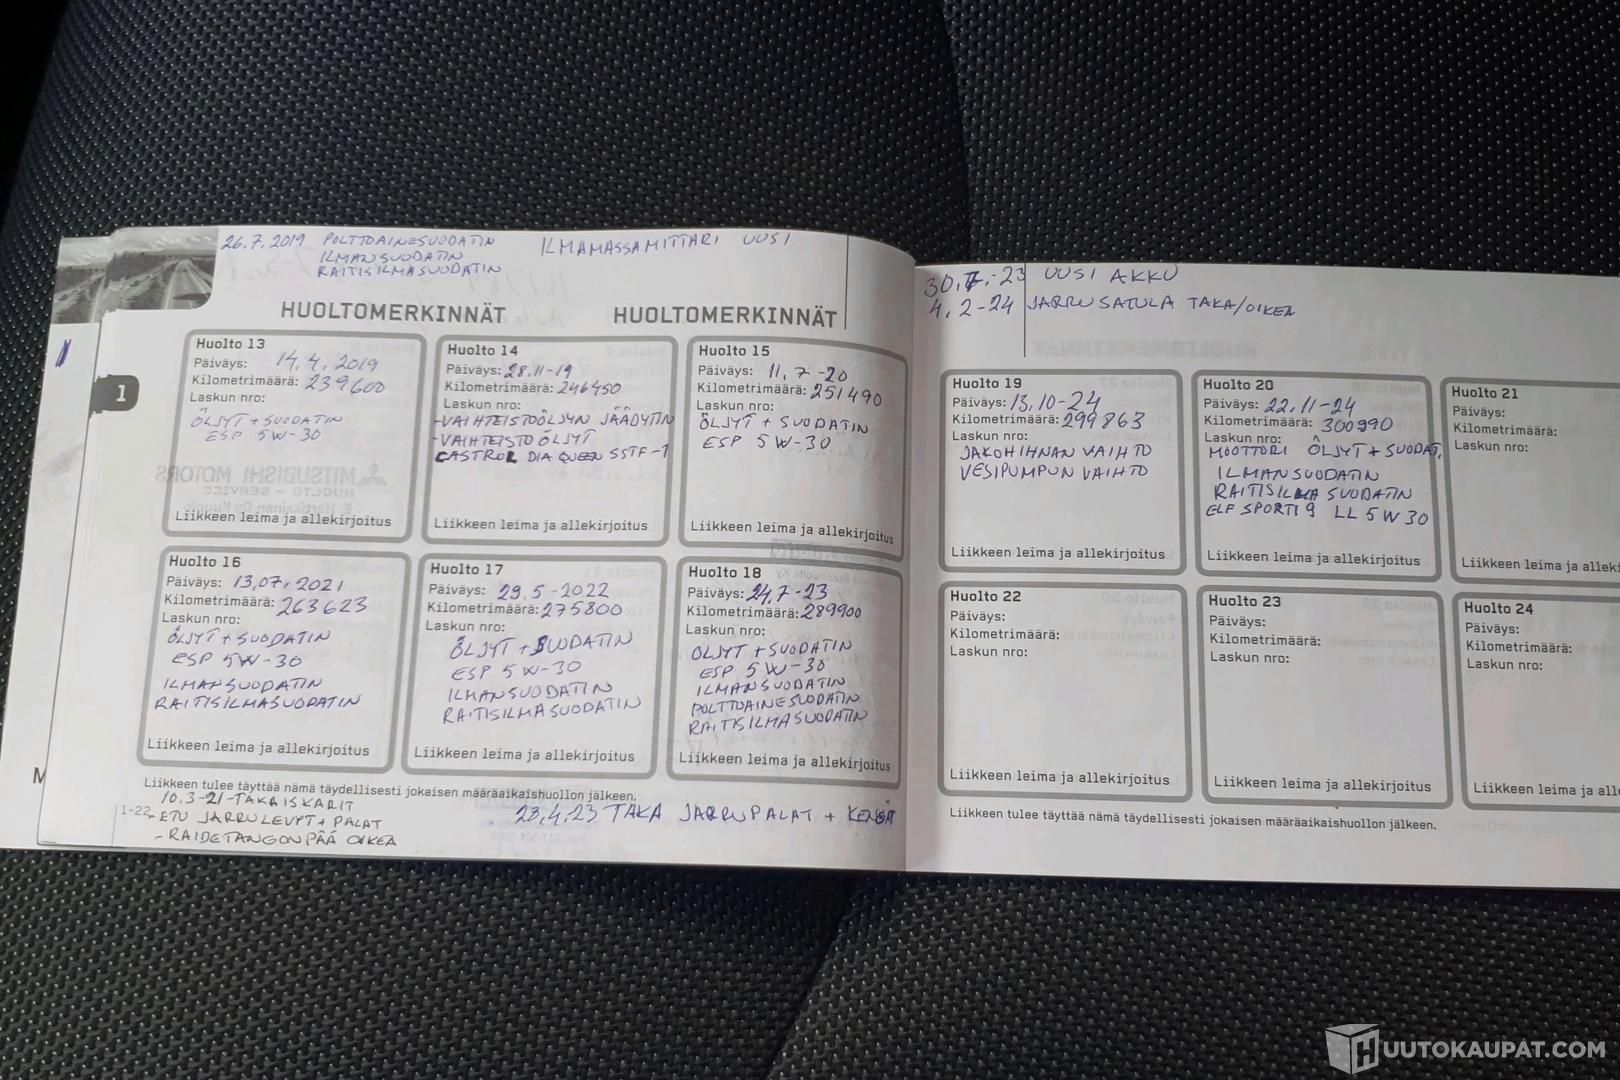 26.7.2019 POLTTOAINESUODATIN ILMAMASSAMITTARI UUSI
ILMANSUODATIN
RAITISILMASUODATIN
HUOLTOMERKINNÄT HUOLTOMERKINNÄT
1
Huolto 13
Päiväys: 14.4.2019
Kilometrimäärä: 239600
Laskun nro:
ÖLJYT + SUODATIN
ESP 5W-30
Liikkeen leima ja allekirjoitus
Huolto 14
Päiväys: 28.11-19
Kilometrimäärä: 246450
Laskun nro:
-VAIHTEISTOÖLJYN JÄÄDYTIN
-VAIHTEISTO ÖLJYT
CASTROL DIA QUEEN SSTF-1
Liikkeen leima ja allekirjoitus
Huolto 15
Päiväys: 11.7-20
Kilometrimäärä: 251490
Laskun nro:
ÖLJYT + SUODATIN
ESP 5W-30
Liikkeen leima ja allekirjoitus
Huolto 16
Päiväys: 13.07.2021
Kilometrimäärä: 263623
Laskun nro:
ÖLJYT + SUODATIN
ESP 5W-30
ILMANSUODATIN
RAITISILMASUODATIN
Liikkeen leima ja allekirjoitus
Huolto 17
Päiväys: 29.5-2022
Kilometrimäärä: 275800
Laskun nro:
ÖLJYT + SUODATIN
ESP 5W-30
ILMANSUODATIN
RAITISILMASUODATIN
Liikkeen leima ja allekirjoitus
Huolto 18
Päiväys: 24.7-23
Kilometrimäärä: 289900
Laskun nro:
ÖLJYT + SUODATIN
ESP 5W-30
ILMANSUODATIN
POLTTOAINESUODATIN
RAITISILMASUODATIN
Liikkeen leima ja allekirjoitus
Liikkeen tulee täyttää nämä täydellisesti jokaisen määräaikaishuollon jälkeen.
1-22
10.3-21-TAKAISKARIT
-ETU JARRULEVYT + PALAT
-RAIDETANGONPÄÄ OIKEA
23.4.23 TAKA JARRUPALAT + KENGÄT
30.7.-23 UUSI AKKU
4.2-24 JARRUSATULA TAKA/OIKEA
Huolto 19
Päiväys: 13.10-24
Kilometrimäärä: 299863
Laskun nro:
JAKOHIHNAN VAIHTO
VESIPUMPUN VAIHTO
Liikkeen leima ja allekirjoitus
Huolto 20
Päiväys: 22.11-24
Kilometrimäärä: 300990
Laskun nro:
MOOTTORI ÖLJYT + SUODAT.
ILMANSUODATIN
RAITISILMA SUODATIN
ELF SPORTI 9 LL 5W30
Liikkeen leima ja allekirjoitus
Huolto 21
Päiväys:
Kilometrimäärä:
Laskun nro:
Liikkeen leima ja
Huolto 22
Päiväys:
Kilometrimäärä:
Laskun nro:
Liikkeen leima ja allekirjoitus
Huolto 23
Päiväys:
Kilometrimäärä:
Laskun nro:
Liikkeen leima ja allekirjoitus
Huolto 24
Päiväys:
Kilometrimäärä:
Laskun nro:
Liikkeen leima ja
Liikkeen tulee täyttää nämä täydellisesti jokaisen määräaikaishuollon jälkeen.
HUUTOKAUPAT.COM